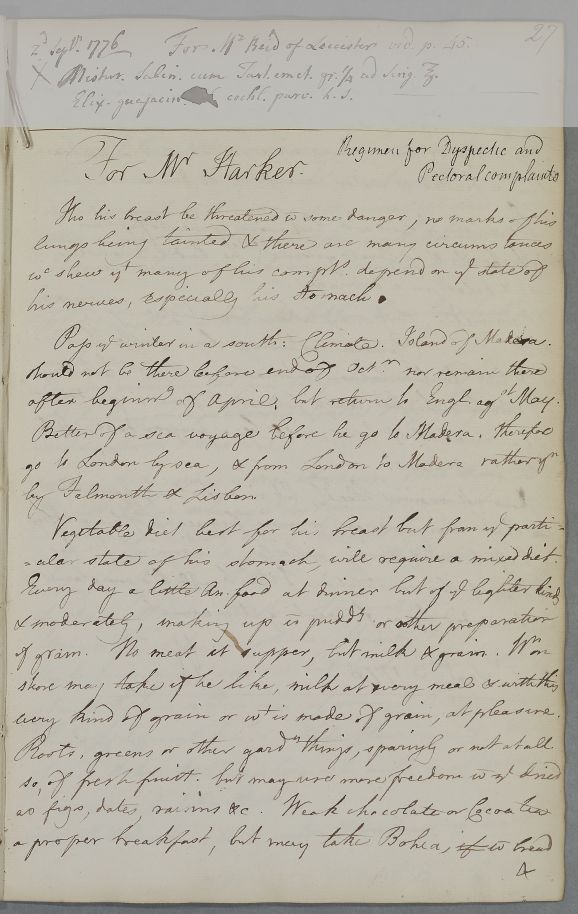 27
2d Septr. 1776 For Mr Reid of Leicester vid. p. 45.
X Mistur. Salin. cum Tart. emet. gr. 1/4 ad sing. ℥.
Elix. guajacin. cochl. parv. h. s.
For Mr Harker.
Regimen for Dyspeptic and
Pectoral complaints
Tho his breast be threatened w some danger, no marks of his
lungs being tainted & there are many circumstances
wc shew yt many of his complts. depend on ye state of
his nerves, especially his stomach.
Pass ye winter in a south: Climate. Island of Madera.
should not be there before end of Octr. nor remain there
after beginng of April, but return to Engl. agst May.
Better of a sea voyage before he go to Madera, therefore
go to London by sea, & from London to Madera rather yn
by Falmouth & Lisbon.
Vegetable diet best for his breast but from ye parti-
-cular state of his stomach, will require a mixed diet.
Every day a little An. food at dinner but of ye lighter kinds
& moderately, making up is pudds. or other preparation
of grain. No meat at supper, but milk & grain. Wn on
shore may take if he like, milk at every meal & with this
every kind of grain or wt is made of grain, at pleasure.
Roots, greens or other gardn things, sparingly or not at all.
so, of fresh fruit. but may use more freedom w ye dried
as figs, dates, raisins &c. Weak chocolate or Cocoa tea
a proper breakfast, but may take Bohea, if w bread